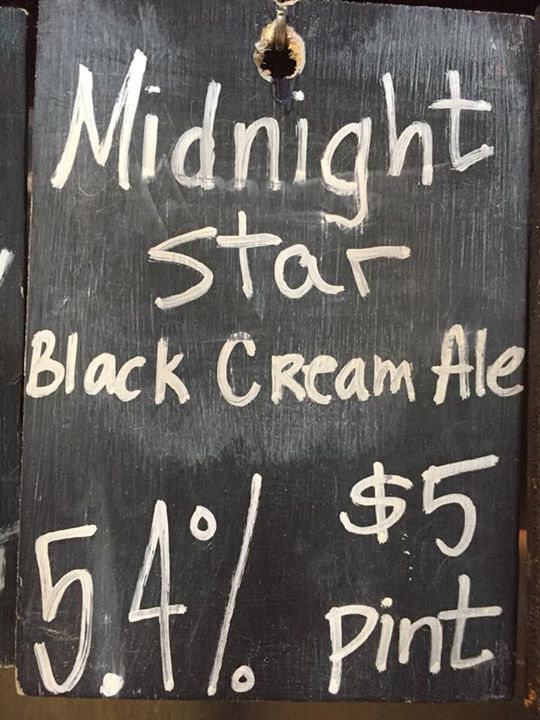 Midnight
Star
Black Cream Ale
$5
5.4% pint